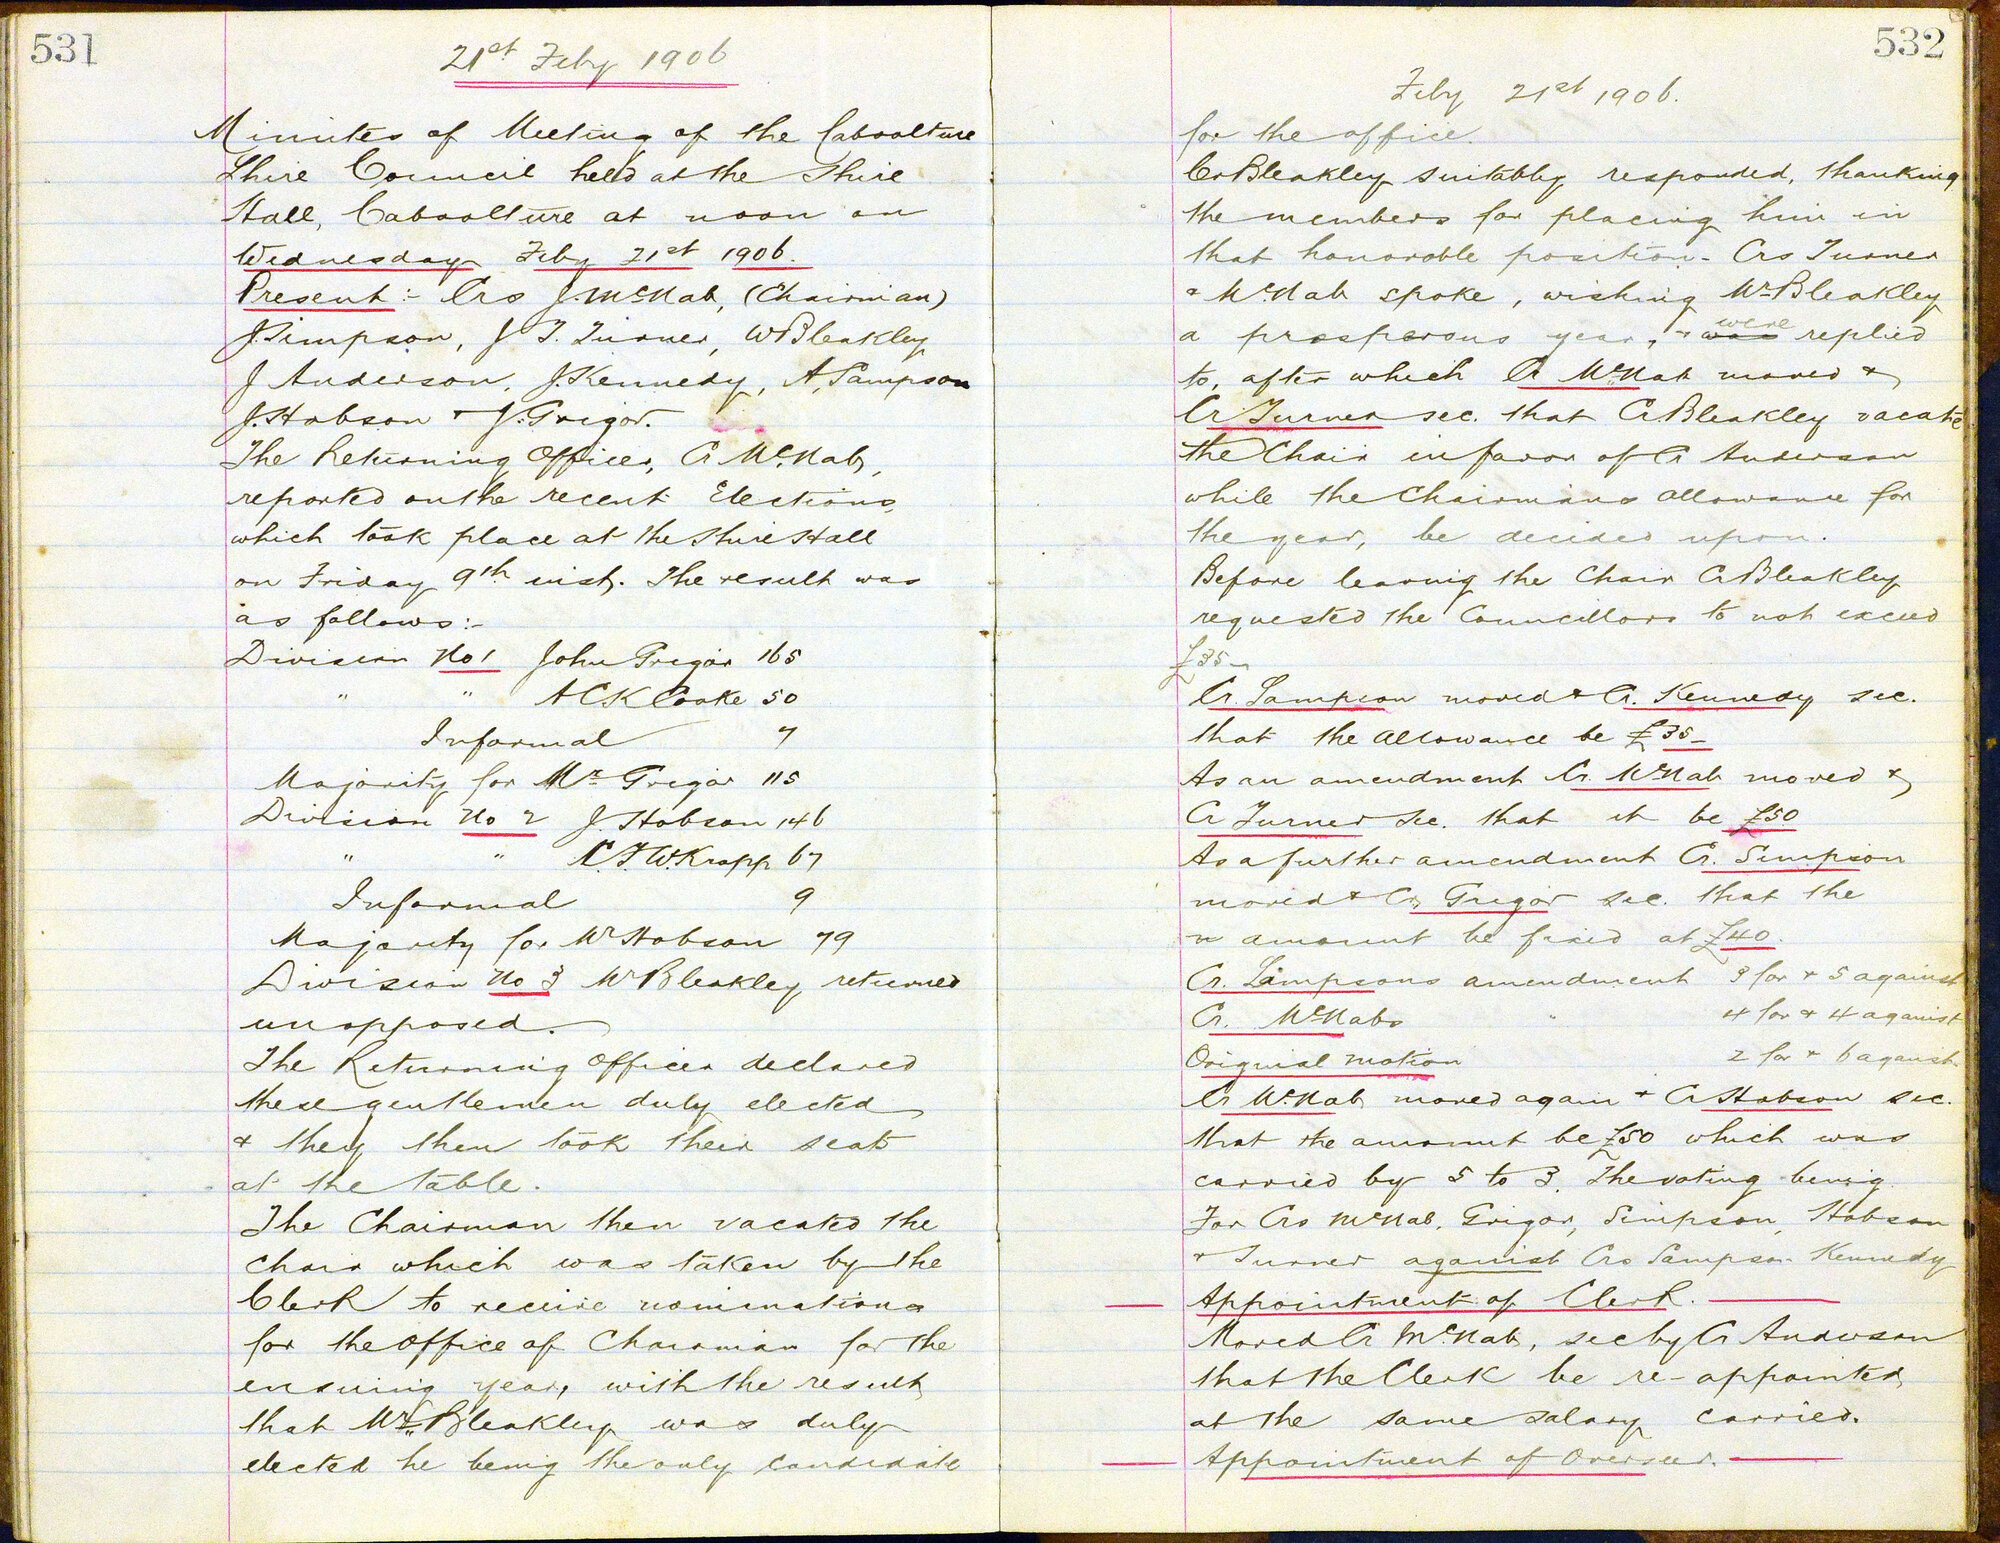 531
21st Feby 1906
Minutes of Meeting of the Caboolture
Shire Council held at the Shire
Hall, Caboolture at noon on
Wednesday Feby 21st 1906.
Present:- Crs J. McNab, (Chairman)
J. Simpson, J T. Turner, W Bleakley
J Anderson, J. Kennedy, A. Sampson
J. Hobson & J. Grigor.
The Returning Officer, Cr McNab,
reported on the recent Elections,
which took place at the Shire Hall
on Friday 9th inst. The result was
as follows:-
Division No 1 John Grigor 165
" " A C K Cooke 50
Informal 7
Majority for Mr Grigor 115
Division No 2 J. Hobson 146
" " C. F. W. Krapp 67
Informal 9
Majority for Mr Hobson 79
Division No 3 Mr Bleakley returned
unopposed.
The Returning Officer declared
these gentlemen duly elected
& they then took their seats
at the table.
The Chairman then vacated the
chair which was taken by the
Clerk to receive nominations
for the office of Chairman for the
ensuing year, with the result
that Mr Bleakley was duly
elected he being the only candidate
532
Feby 21st 1906.
for the office.
Cr Bleakley suitably responded, thanking
the members for placing him in
that honorable position. Crs Turner
& McNab spoke, wishing Mr Bleakley
a prosperous year, & was were replied
to, after which Cr McNab moved &
Cr Turner sec. that Cr Bleakley vacate
the Chair in favor of Cr Anderson
while the Chairmans allowance for
the year, be decided upon.
Before leaving the Chair Cr Bleakley
requested the Councillors to not exceed
£35-
Cr. Sampson moved & Cr. Kennedy sec.
that the allowance be £35-
As an amendment Cr. McNab moved &
Cr Turner sec. that it be £50
As a further amendment Cr. Simpson
moved & Cr Grigor sec. that the
amount be fixed at £40.
Cr. Simpsons amendment 3 for & 5 against
Cr. McNabs " 4 for & 4 against
Original motion 2 for & 6 against.
Cr McNab moved again & Cr Hobson sec.
that the amount be £50 which was
carried by 5 to 3. The voting being
For Crs McNab, Grigor, Simpson, Hobson
& Turner against Crs Sampson Kennedy
Appointment of Clerk.
Moved Cr McNab, sec by Cr Anderson
that the Clerk be re-appointed
at the same salary carried.
Appointment of Overseer.